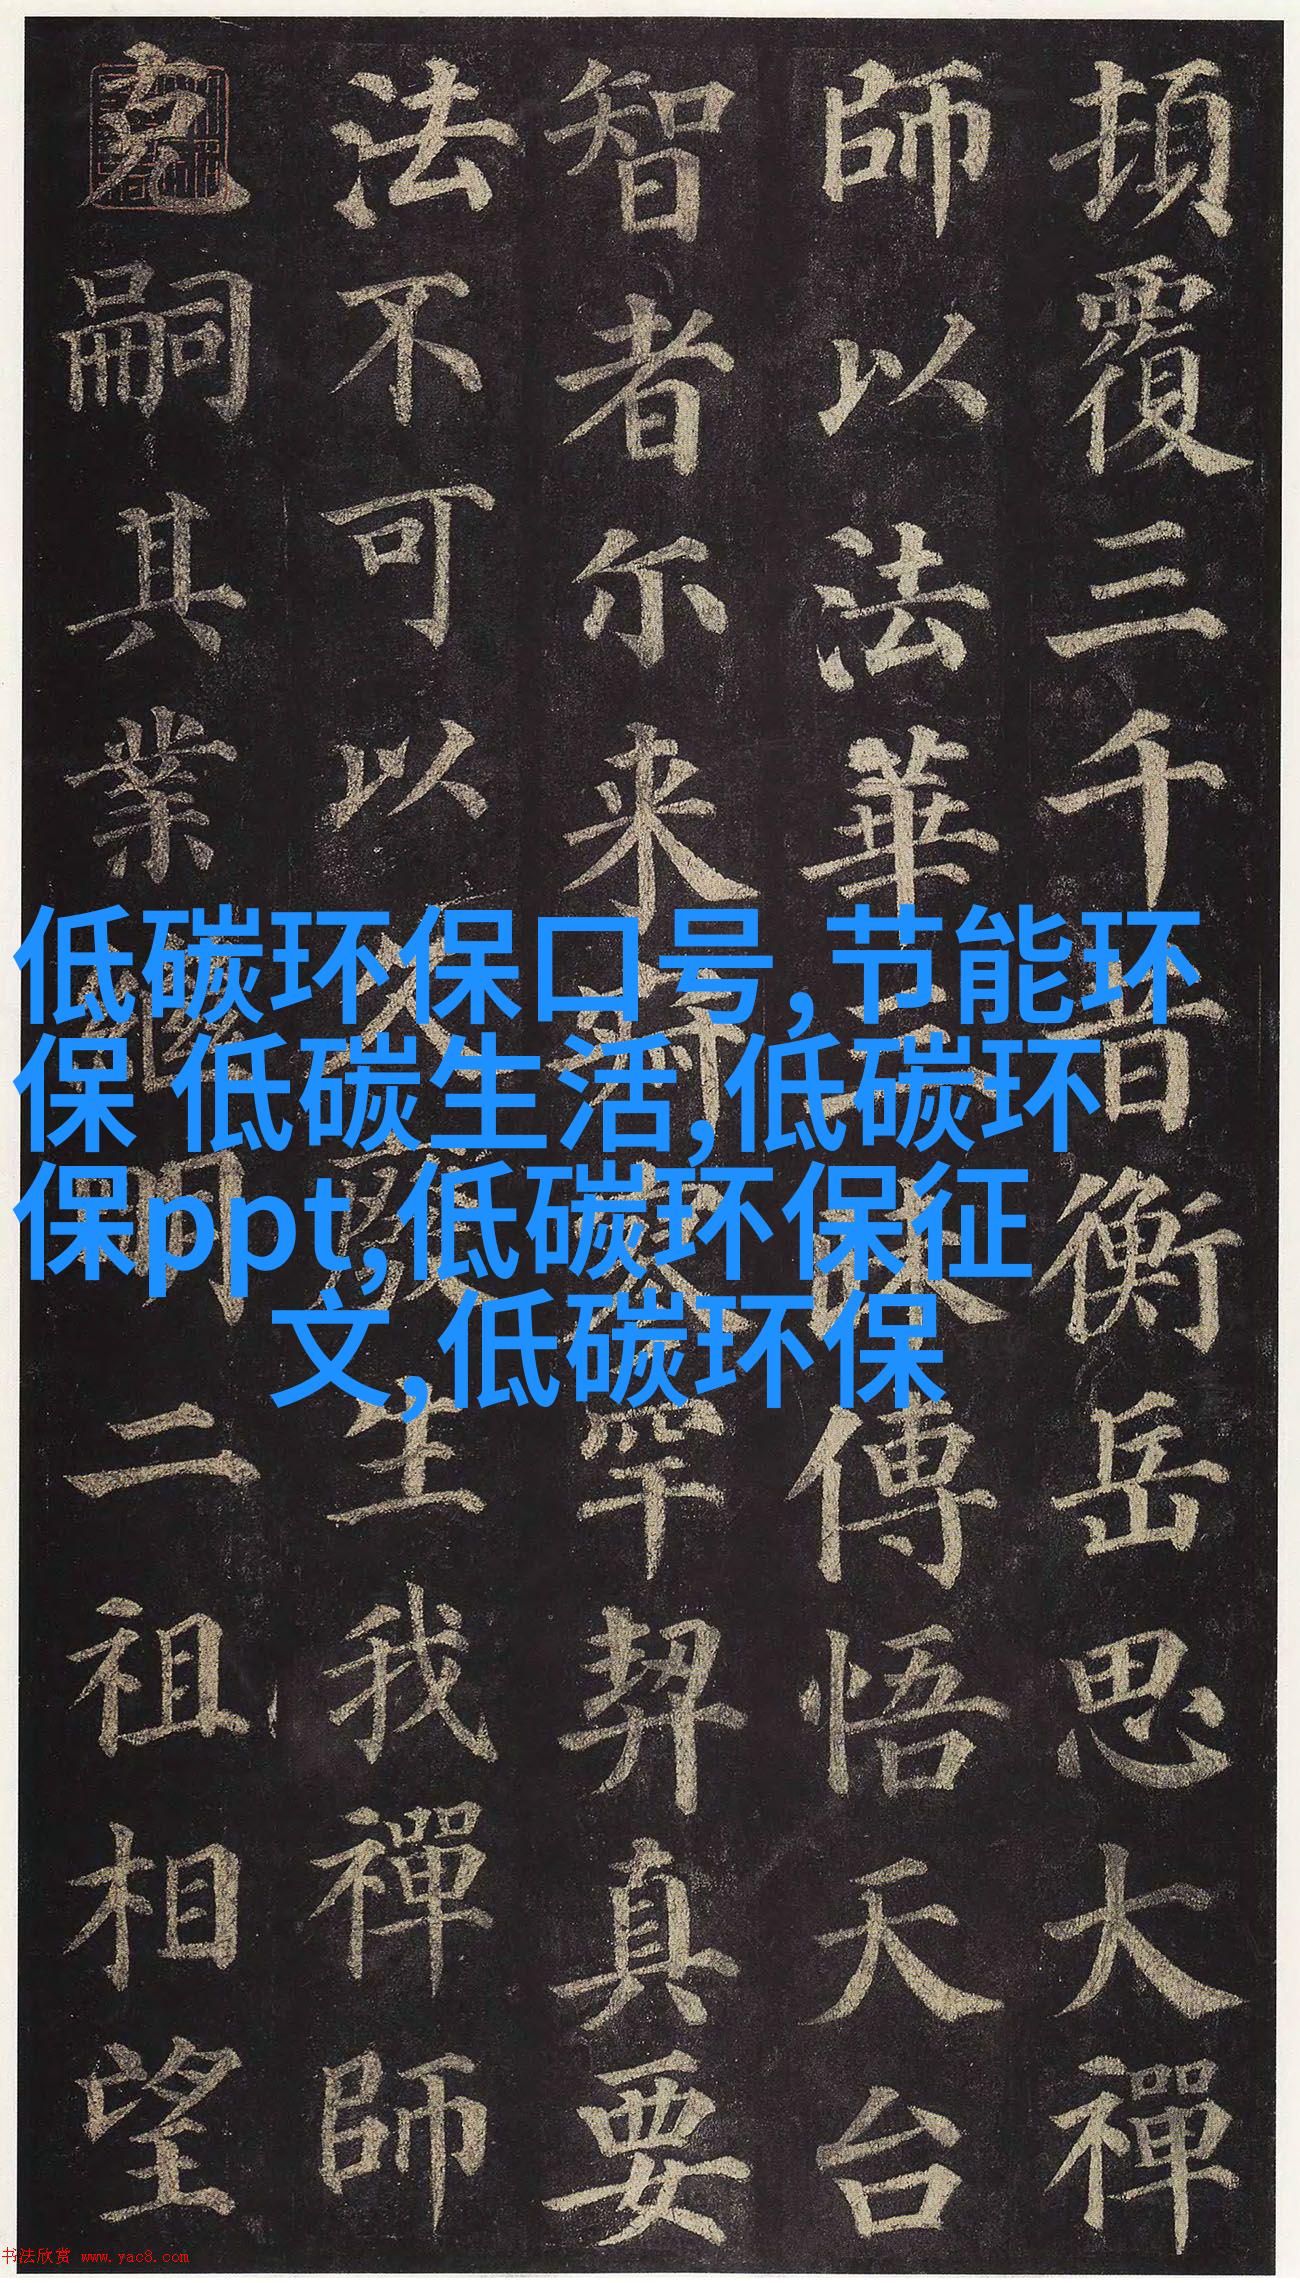 頓覆三千昔衡岳思大禪
師以法華三昧傳悟天台
智者尓来寂寥罕契真要
法不可以久廢生我禪師
克嗣其業繼明二祖相望
低碳环保口号,节能环
保 低碳生活,低碳环
保ppt,低碳环保征
文,低碳环保
书法欣赏 www.yac8.com